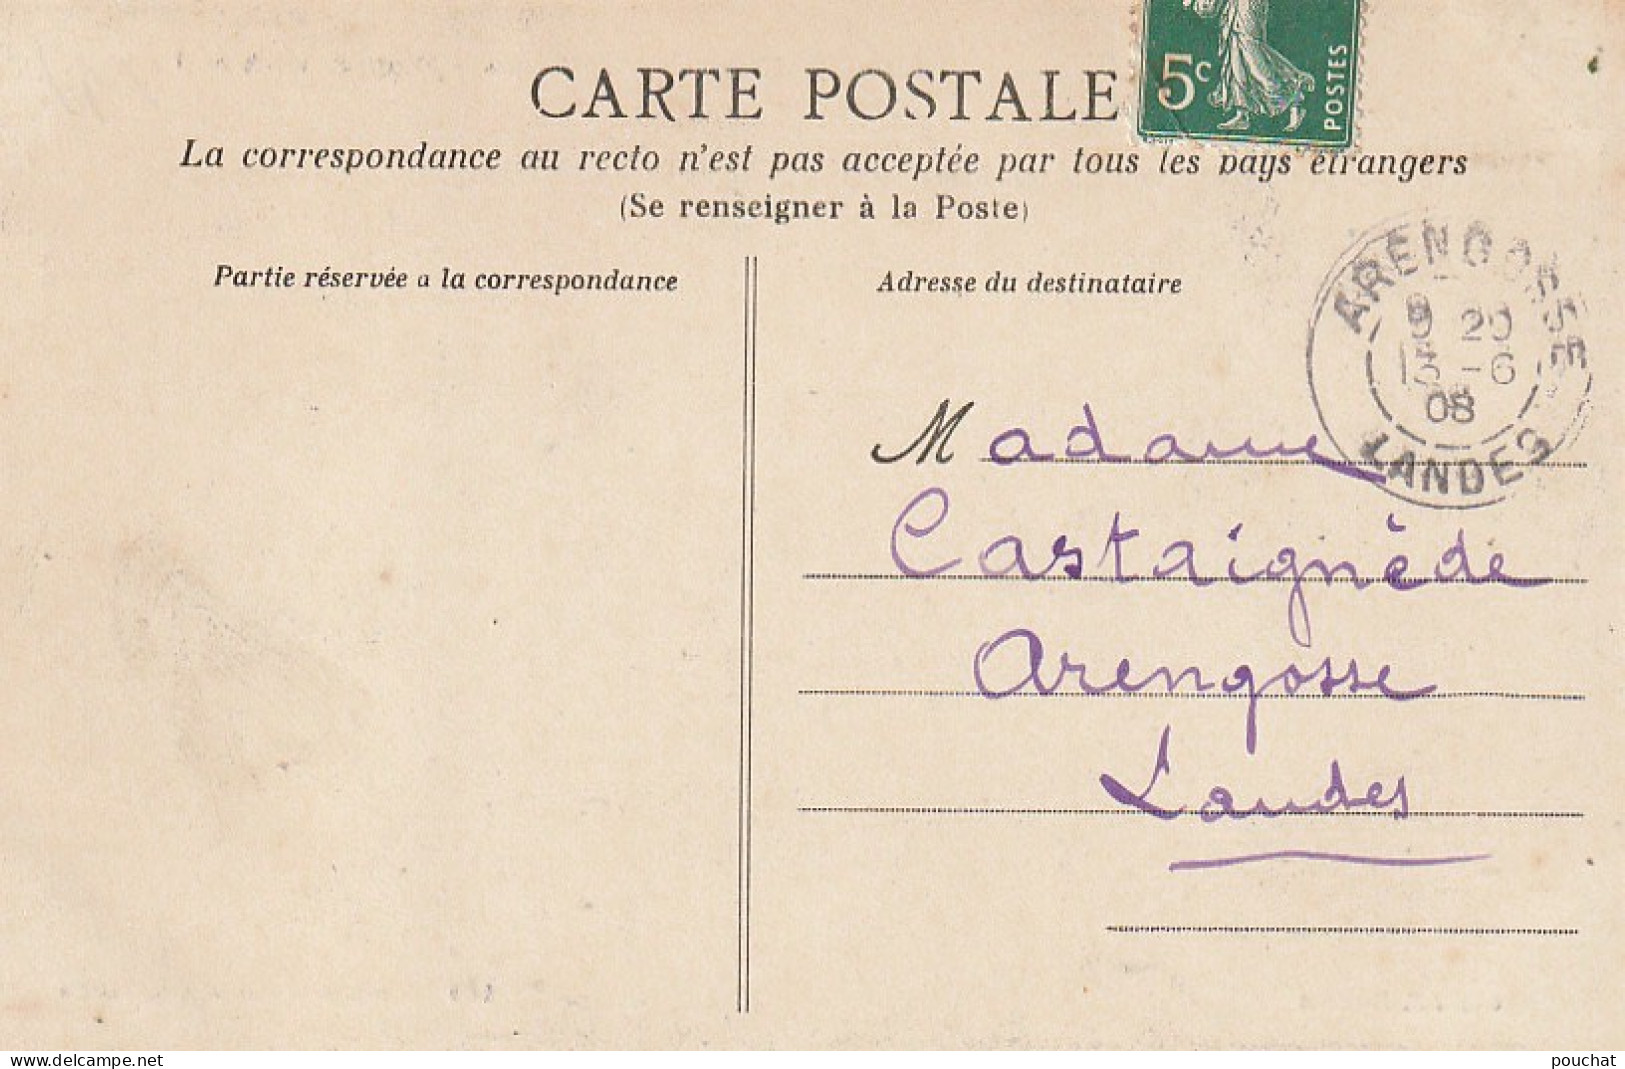 CARTE POSTALE
5c
POSTES
La correspondance au recto n'est pas acceptée par tous les pays étrangers
(Se renseigner à la Poste)
Partie réservée a la correspondance
Adresse du destinataire
ARENGOSSE
9 20
13 -6
08
LANDES
Madame
Castaignède
Arengosse
Landes
www.delcampe.net
pouchat